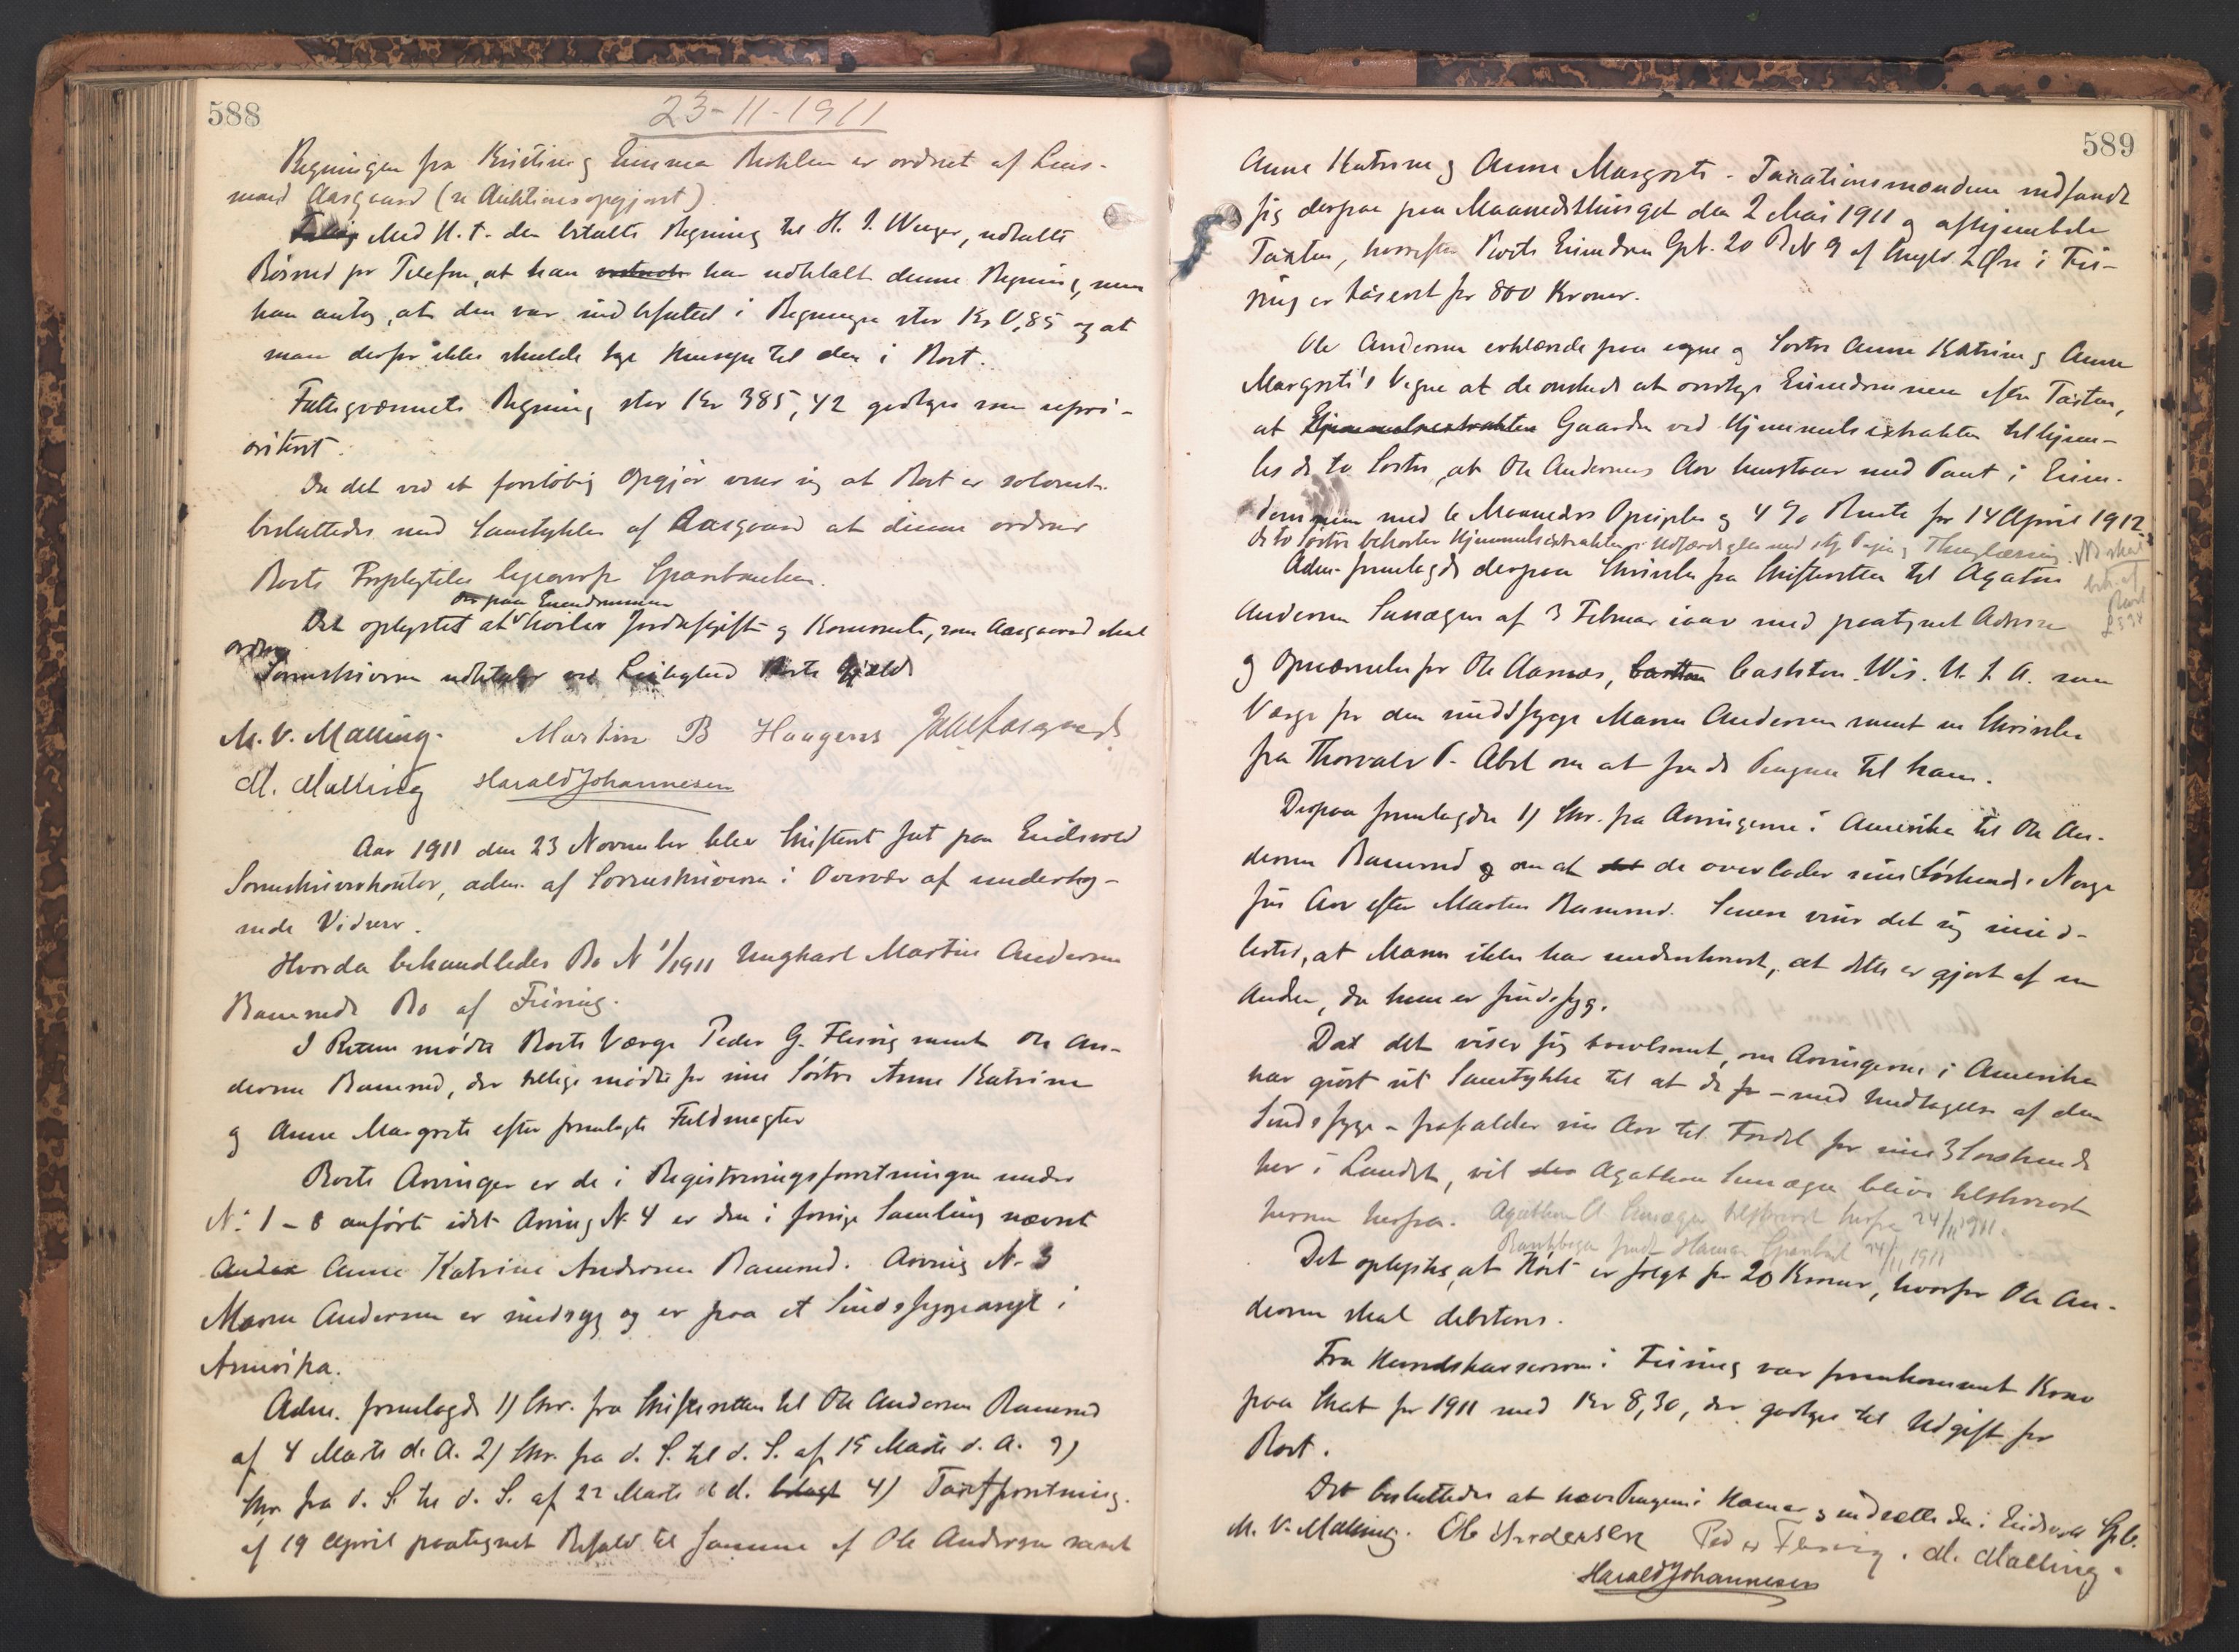 588
23-11-1911
Regningen fra Kristine og Emma Bekklen er ordnet af Lens-
mand Aasgaard (se Auktionsopgjøret).
Med H. t. den betalte Regning til H. J. Wenger, udtalte
Røisrud pr Telefon, at han har udbetalt denne Regning, men
han antog, at den var indbefattet i Regningen stor Kr 0,85 og at
man derfor ikke skulde tage Hensyn til den i Boet.
Fattigvæsenets Regning stor Kr 385,42 godtages som upri-
oritert.
Da det ved et foreløbig Opgjør viser sig at Boet er solvent
besluttedes med Samtykke af Aasgaard at denne ordner
Boets Forpligtelser ligeoverfor Sparebanken.
der paa Eiendommen
Det oplystes at hviler Jordafgift og Kornrente, som Aasgaard skal
ordne
Sorenskriveren udbetaler ved Leilighed Boets Gjæld
M. V. Malling. Martin B Haagens J. Aasgaard
M. Malling Harald Johannesen
Aar 1911 den 23 November blev Skifteret sat paa Eidsvold
Sorenskriverkontor, adm. af Sorenskriveren i Overvær af underteg-
nede Vidner.
Hvorda behandledes Bo N 1/1911 Ungkarl Martin Andersen
Ramruds Bo af Feiring.
I Retten mødte Boets Værge Peder G. Flesvig samt Ole An-
dersen Ramrud, der tillige mødte for sine Søstre Anne Katrine
og Anne Margrete efter fremlagte Fuldmagter
Boets Arvinger er de i Registreringsforretningen under
No 1-8 anførte idet Arving N. 4 er den i forrige Samling nævnte
Anne Katrine Andersen Ramrud. Arving N. 3
Maren Andersen er sindssyg og er paa et Sindssygeasyl i
Amerika.
Adm. fremlagde 1) Skr. fra Skifteretten til Ole Andersen Ramrud
af 4 Marts d. A. 2) Skr. fra d. S. til d. S. af 15 Marts d. A. 3)
Skr. fra d. S. til d. S. af 22 Marts d. A. 4) Taxtforretning
af 19 April paategnet Befald til Samme af Ole Andersen samt
589
Anne Katrine og Anne Margrete. Taxationsmændene indfandt
sig derpaa paa Maanedsthinget den 2 Mai 1911 og afhjemlede
Taxten, hvorefter Boets Eiendom Gb. 20 B.N 9 af Skyld 2 Øre i Fei-
ring er taxeret for 800 Kroner.
Ole Andersen erklærede paa egne og Søstre Anne Katrine og Anne
Margrete's Vegne at de ønskede at overtage Eiendommen efter Taxten,
at Hjemmelsextrakten Gaarden ved Hjemmelsextrakten tilhjem-
les de to Søstre, at Ole Andersens Arv henstaar med Pant i Eien-
dommen med 6 Maaneders Opsigelse og 4 % Rente fra 14 April 1912
de to Søstre bekoster Hjemmelsextraktens Udfærdigelse med Papir og Thinglæsning.
Adm. fremlagde derpaa Skrivelse fra Skifteretten til Agaton
Andersen Sunægen af 3 Februar iaar med paategnet Adresse
og Opnævnelse for Ole Aamos, Cashton Wis. U. S. A. som
Værge for den sindssyge Maren Andersen samt en Skrivelse
fra Thorvald P. Abel om at sende Pengene til ham.
Derpaa fremlagdes 1) Skr. fra Arvingerne i Amerika til Ole An-
dersen Ramrud om at de overlader sine Søskende i Norge
sin Arv efter Martin Ramrud. Senere viser det sig imid-
lertid, at Maren ikke har underskrevet, at dette er gjort af en
Anden, da hun er sindssyg.
Da det viser sig tvivlsomt, om Arvingerne i Amerika
har givet sit Samtykke til at de - med Undtagelse af den
Sindssyge - frafalder sin Arv til Fordel for sine 3 Søskende
her i Landet, vil Agathon Sunægen blive tilskrevet
herom herfra. Agathon A Sunægen tilskrevet herfra 24/11 1911.
Bankbogen sendt Hamar Sparebank 24/11 1911
Det oplystes, at Høiet er solgt for 20 Kroner, hvorfor Ole An-
dersen skal debiteres.
Fra Herredskassereren i Feiring var fremkommet Krav
paa Skat for 1911 med Kr 8,30, der godtages til Udgift for
Boet.
Det besluttedes at hæve Pengene i Hamar og indsætte den i Eidsvold Spb.
M. V. Malling. Ole Andersen Peder Flesvig. M. Malling.
Harald Johannesen